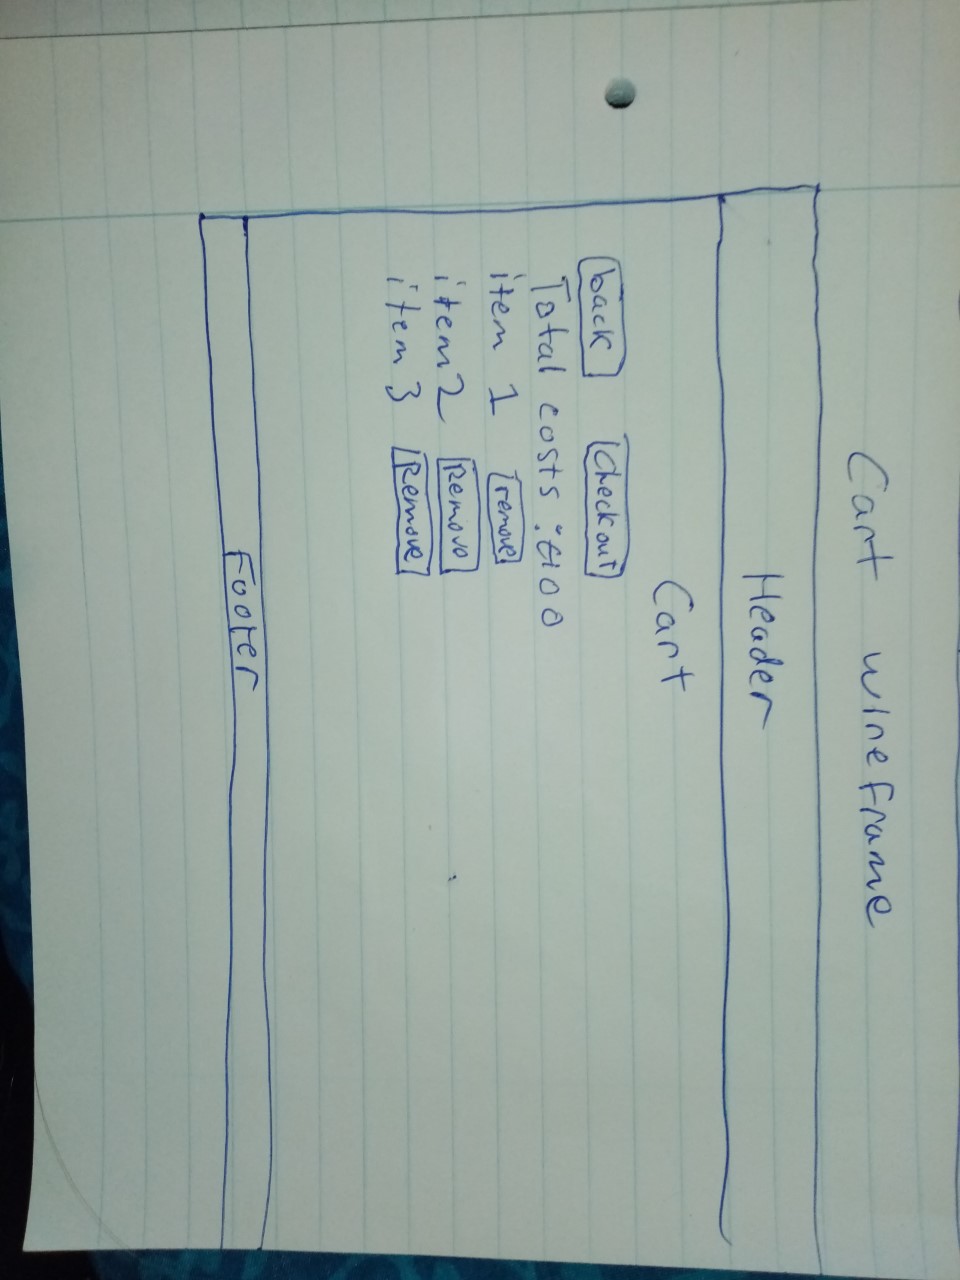 Cart wireframe
Header
Cart
back checkout
Total costs: £100
item 1 remove
item 2 Remove
item 3 Remove
Footer